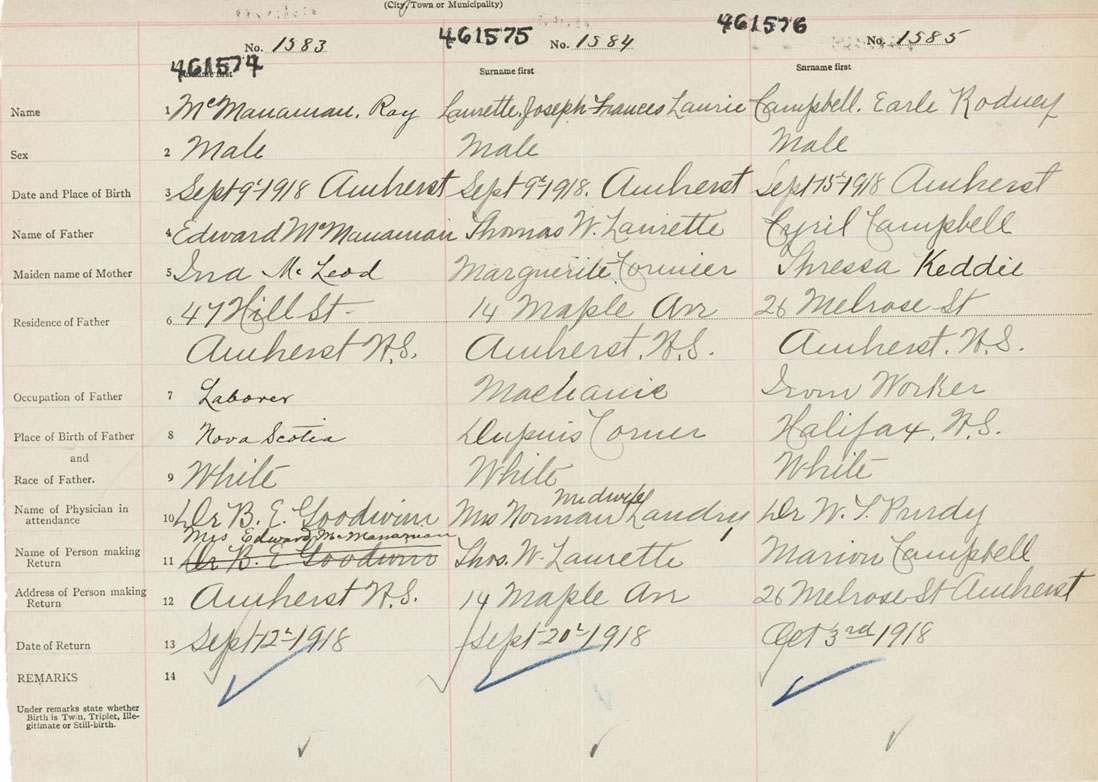 (City, Town or Municipality)
No. 1583
461575 No. 1584
461576 No. 1585
461574
Surname first
Surname first
Surname first
Name 1 McManaman, Roy Laurette, Joseph Frances Laurie Campbell, Earle Rodney
Sex 2 Male Male Male
Date and Place of Birth 3 Sept 9th 1918 Amherst Sept 9th 1918. Amherst Sept 15th 1918 Amherst
Name of Father 4 Edward McManaman Thomas W. Laurette Cyril Campbell
Maiden name of Mother 5 Ina McLeod Marguerite Cormier Thressa Keddie
Residence of Father 6 47 Hill St. 14 Maple Arr 26 Melrose St
Amherst N.S. Amherst, N.S. Amherst, N.S.
Occupation of Father 7 Laborer Machanic Iron Worker
Place of Birth of Father 8 Nova Scotia Dupuis Corner Halifax, N.S.
and
Race of Father. 9 White White White
Midwife
Name of Physician in attendance 10 Dr B. E. Goodwin Mrs Norman Landry Dr W. T. Purdy
Mrs Edward McManaman
Name of Person making Return 11 Dr B. E Goodwin Thos. W. Laurette Marion Campbell
Address of Person making Return 12 Amherst N.S. 14 Maple Arr 26 Melrose St Amherst
Date of Return 13 Sept 12th 1918 Sept 20th 1918 Oct 3rd 1918
REMARKS 14
Under remarks state whether
Birth is Twin, Triplet, Ille-
gitimate or Still-birth.